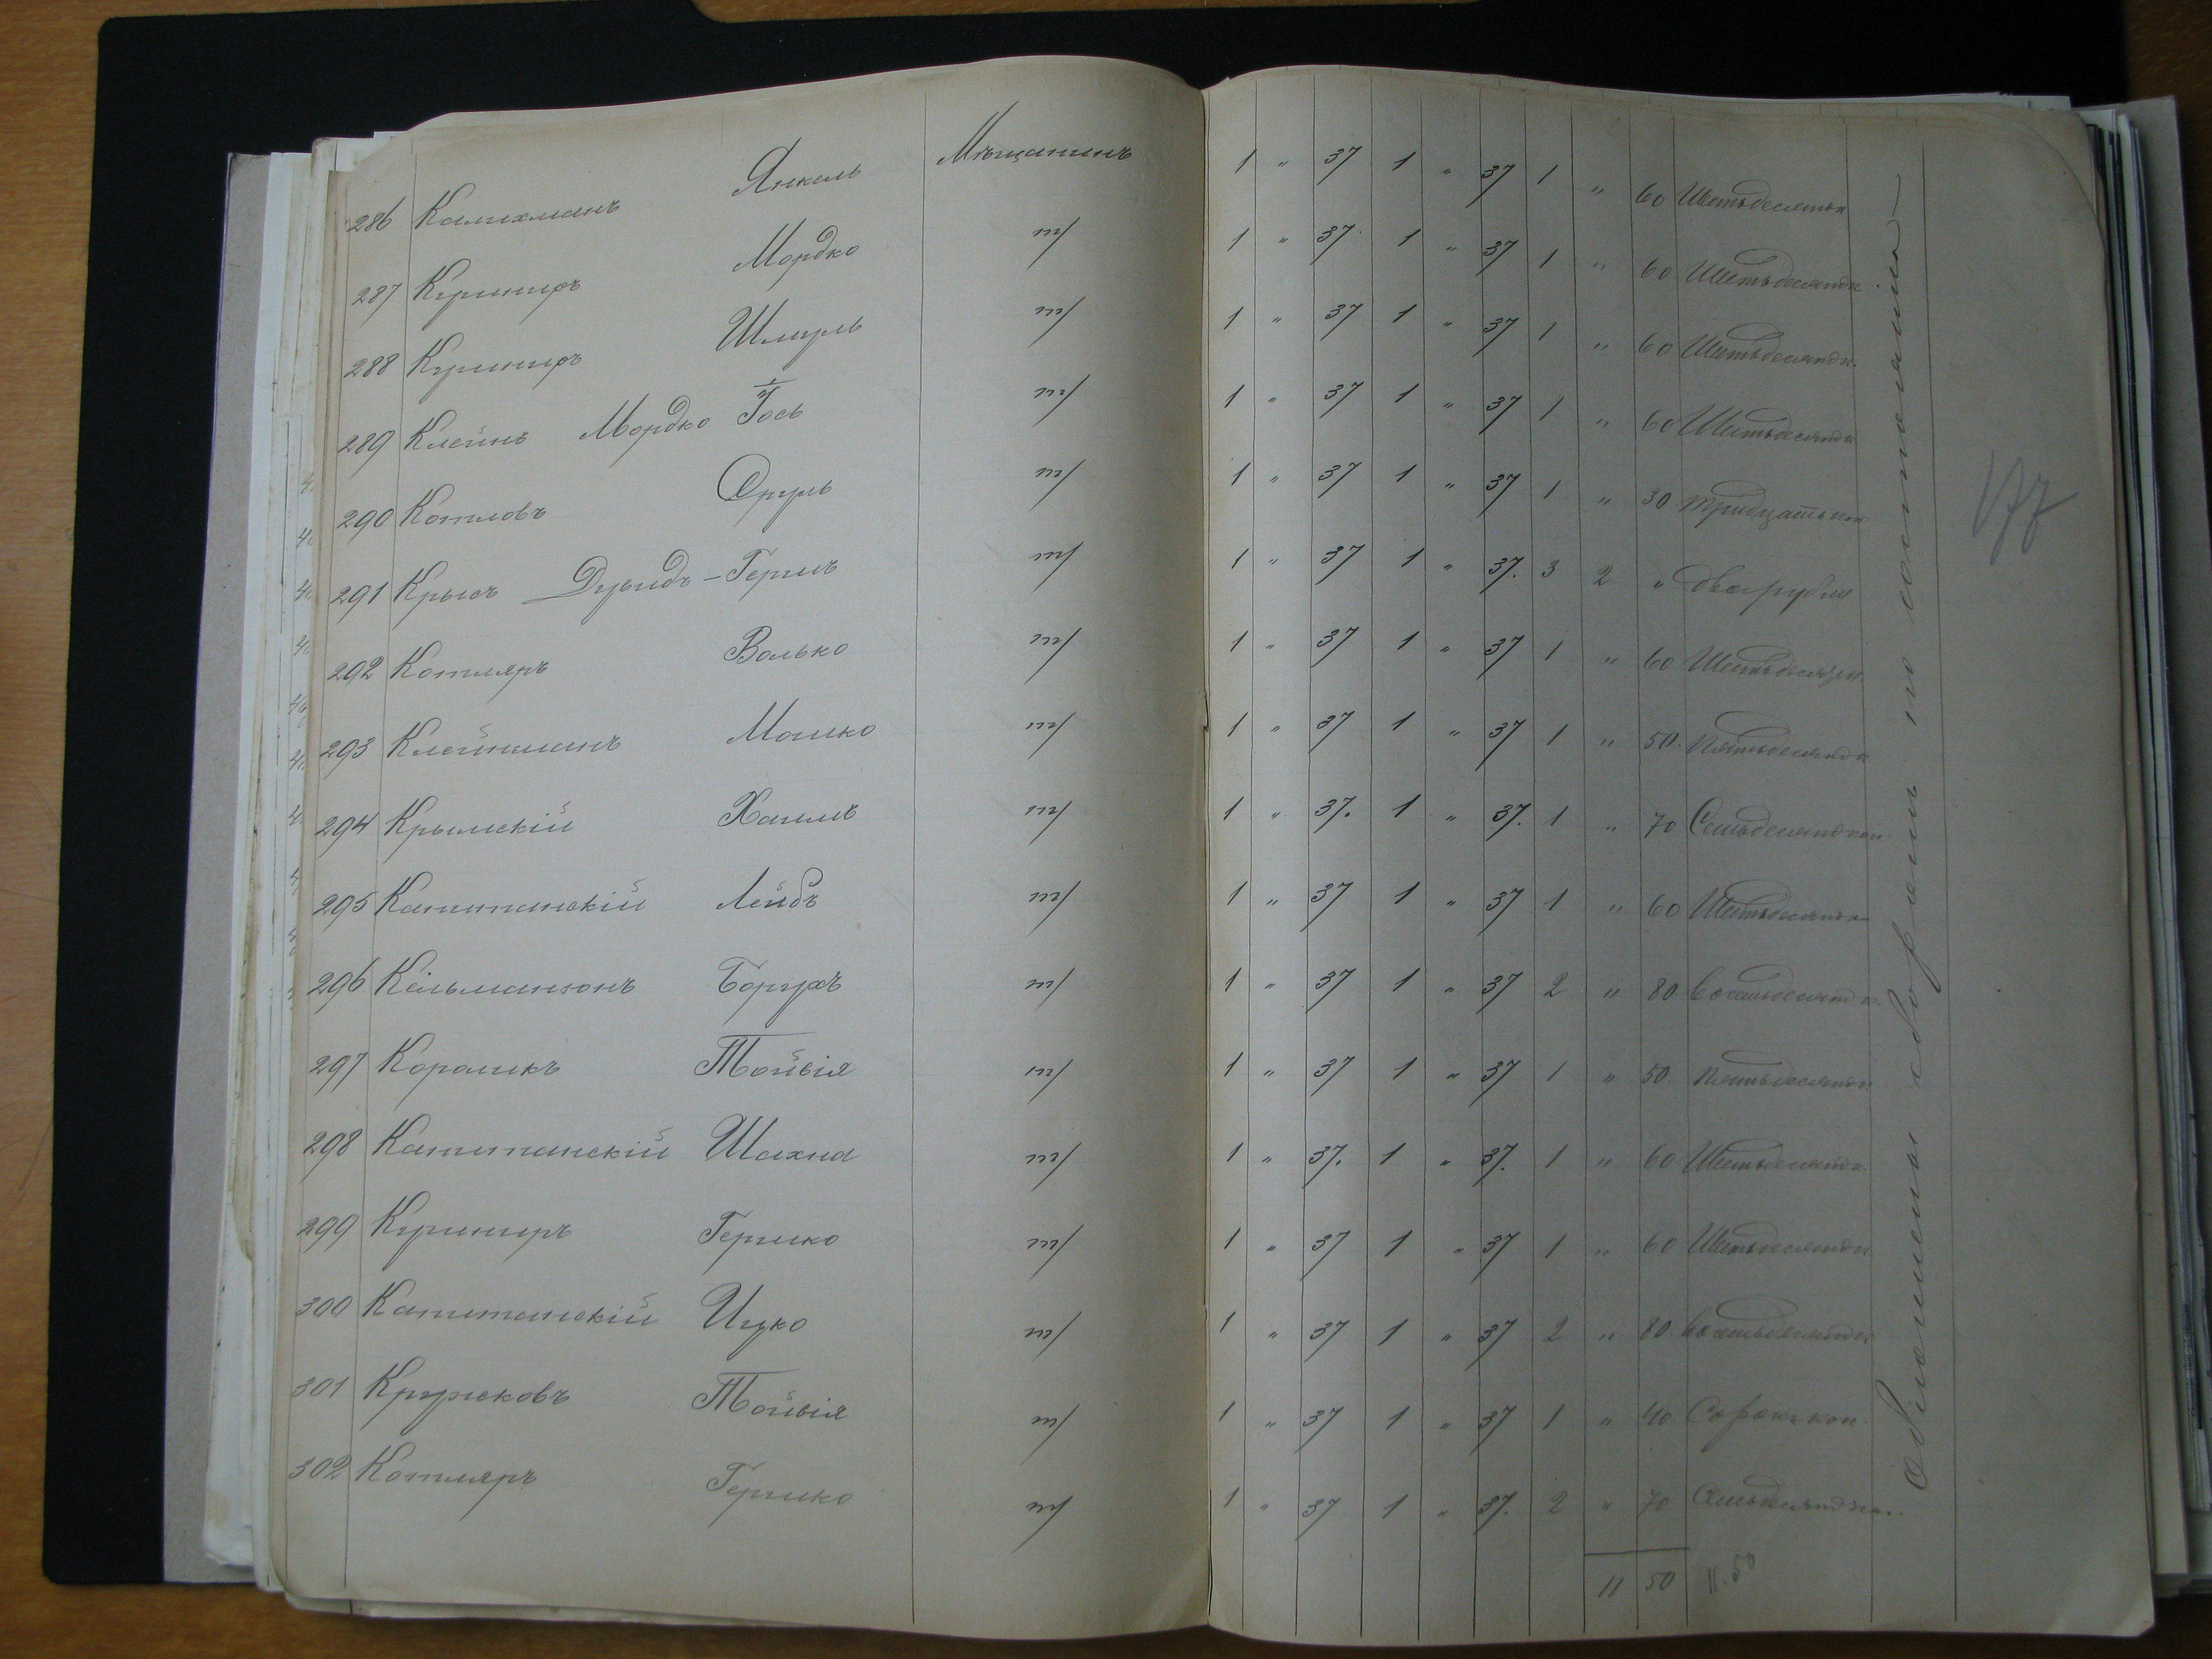 286 Калихманъ Янкель Мѣщанинъ 1 " 37 1 " 37 1 " 60 Шестьдесятъ к
287 Кушниръ Мордко т/ 1 " 37 1 " 37 1 " 60 Шестьдесятъ к
288 Кушниръ Шмуль т/ 1 " 37 1 " 37 1 " 60 Шестьдесятъ к.
289 Клейнъ Мордко Іось т/ 1 " 37 1 " 37 1 " 60 Шестьдесятъ к
290 Котловъ Сруль т/ 1 " 37 1 " 37 1 " 30 тридцать коп
291 Крысъ Дувидъ - Гершъ т/ 1 " 37 1 " 37. 3 2 " два рубля
292 Котляръ Волько т/ 1 " 37 1 " 37 1 " 60 Шестьдесят к.
293 Клейнманъ Мошко т/ 1 " 37 1 " 37 1 " 50. Пятьдесятъ к
294 Крымскій Хаимъ т/ 1 " 37. 1 " 37. 1 " 70 Семьдесятъ коп.
295 Капитанскій Лейбъ т/ 1 " 37 1 " 37 1 " 60 Шестьдесятъ к
296 Кельманзонъ Борухъ т/ 1 " 37 1 " 37 2 " 80. Восемьдесятъ к.
297 Короликъ Тойвія т/ 1 " 37 1 " 37 1 " 50. Пятьдесятъ к
298 Капитанскій Шахна т/ 1 " 37. 1 " 37. 1 " 60 Шестьдесятъ к.
299 Кушниръ Гершко т/ 1 " 37 1 " 37 1 " 60 Шестьдесятъ к
300 Капитанскій Ицко т/ 1 " 37 1 " 37 2 " 80. Восемьдесятъ к
301 Кружковъ Тойвія т/ 1 " 37 1 " 37 1 " 40 Сорокъ коп
302 Котляръ Гершко т/ 1 " 37 1 " 37. 2 " 70 Семьдесятъ к.
11 50 11.50
Обложенъ сборомъ по состоянію
177